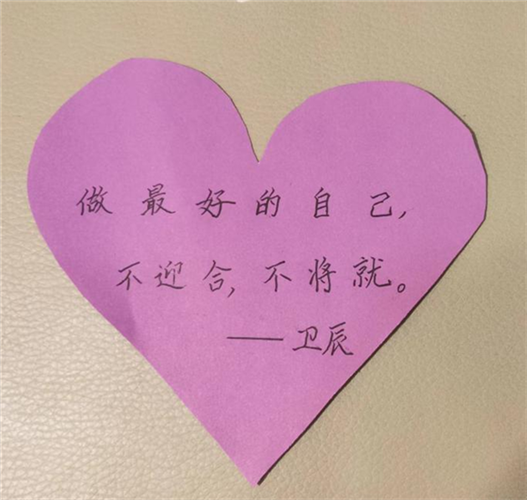 做最好的自己,
不迎合,不将就。
——卫辰